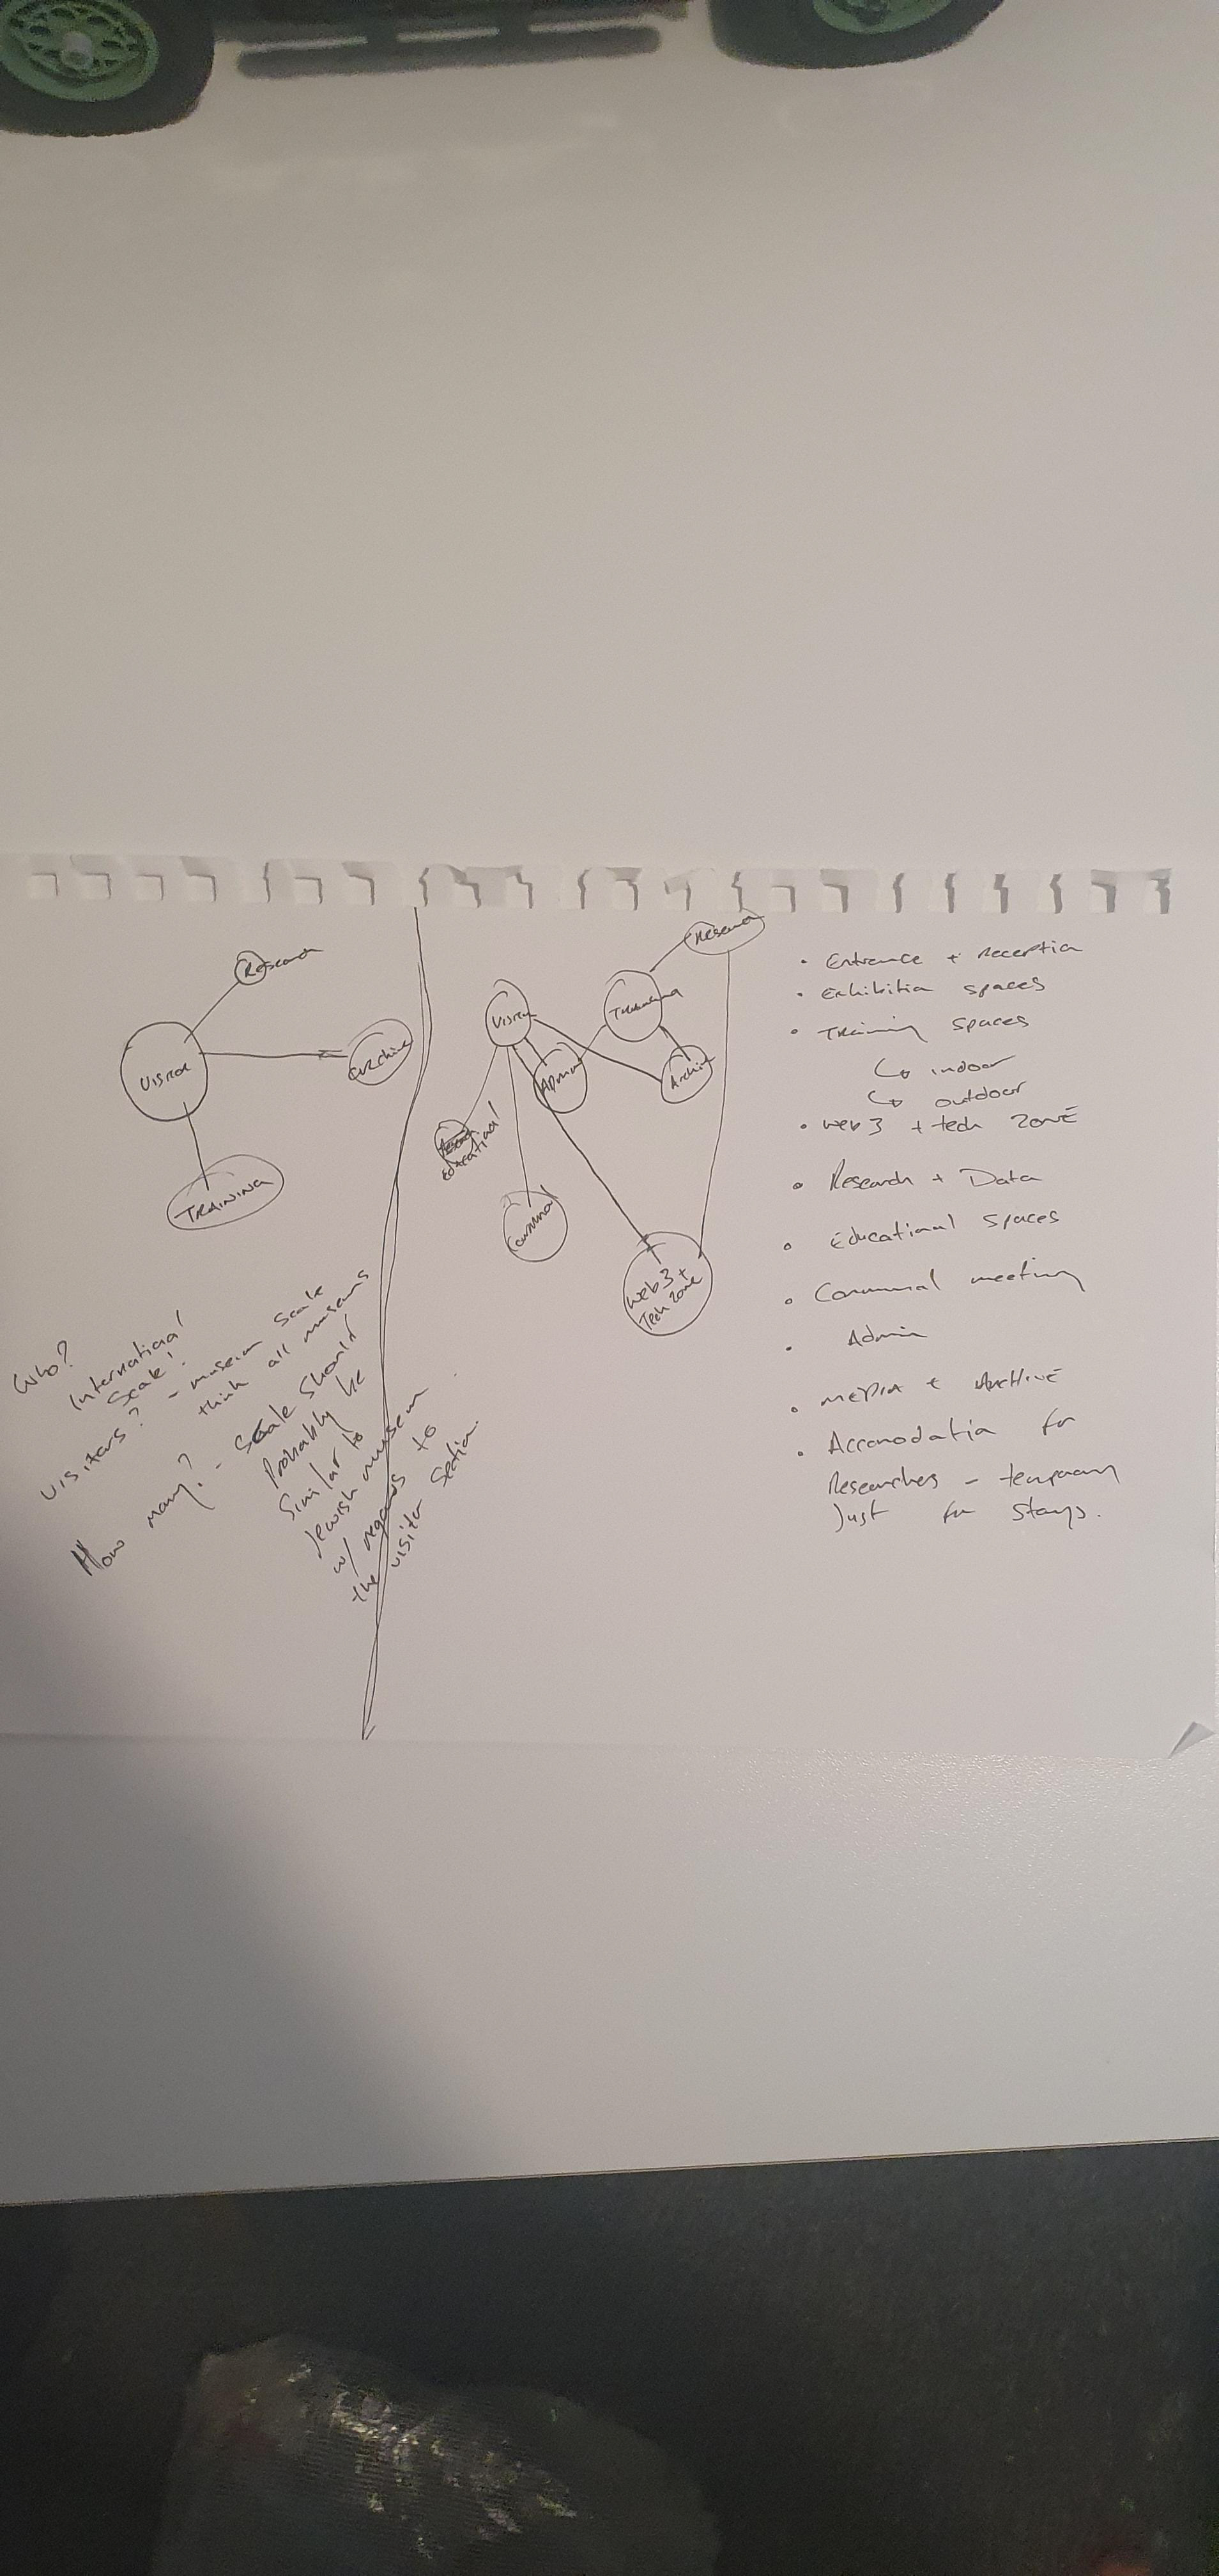 Research
Visitor
Archive
TRAINING
Who?
International
Scale!
Visitors? - museum scale
think all museums
How many? - Scale should
Probably be
Similar to
Jewish museum
w/ regards to
the visitor section
Research
Visitor
Training
Admin
Archive
educational
Communal
web3 +
Tech Zone
• Entrance + Reception
• Exhibition spaces
• Training spaces
↳ indoor
↳ outdoor
• web3 + tech ZONE
• Research + Data
• Educational Spaces
• Communal meeting
• Admin
• MEDIA + ARCHIVE
• Accomodation for
Researchers - temporary
Just for stays.